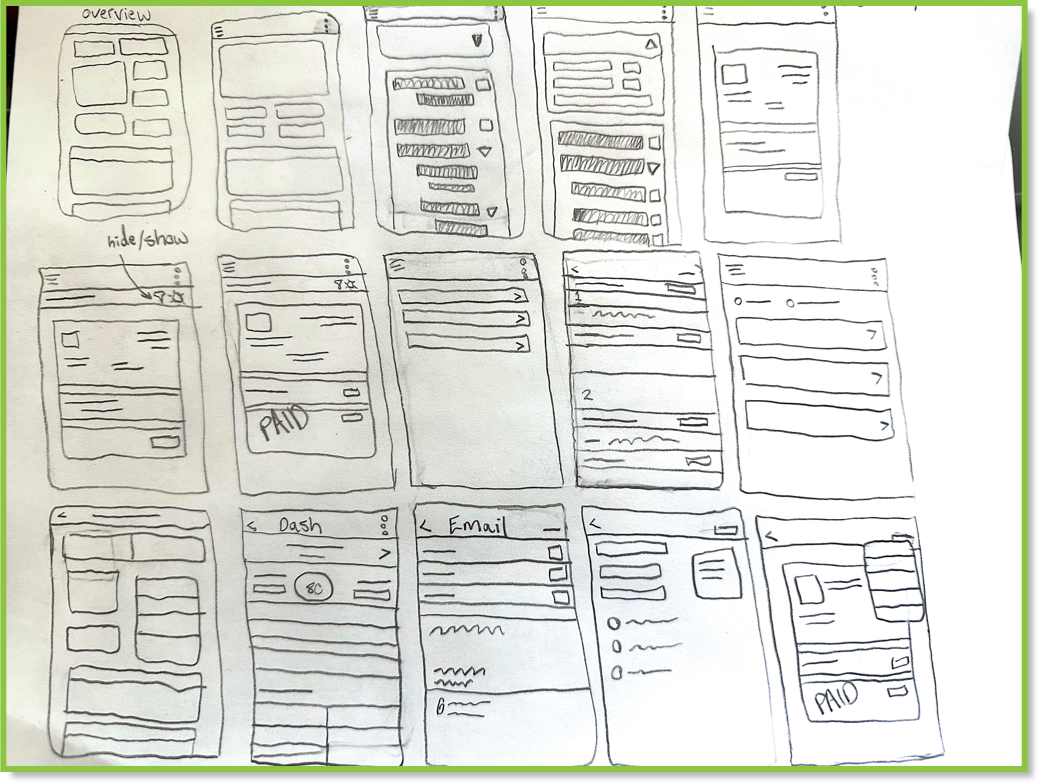 overview
hide/show
1
2
PAID
Dash
Email
PAID